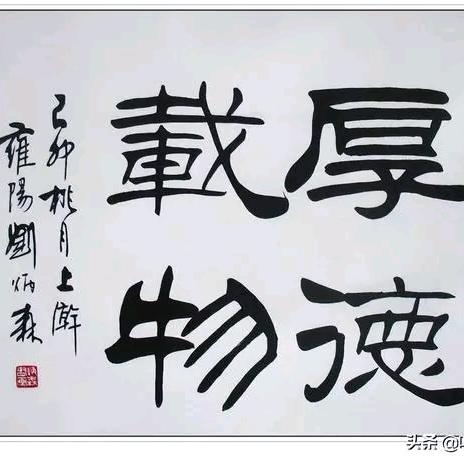 厚德
載物
己卯桃月上澣
雍陽劉炳森
头条